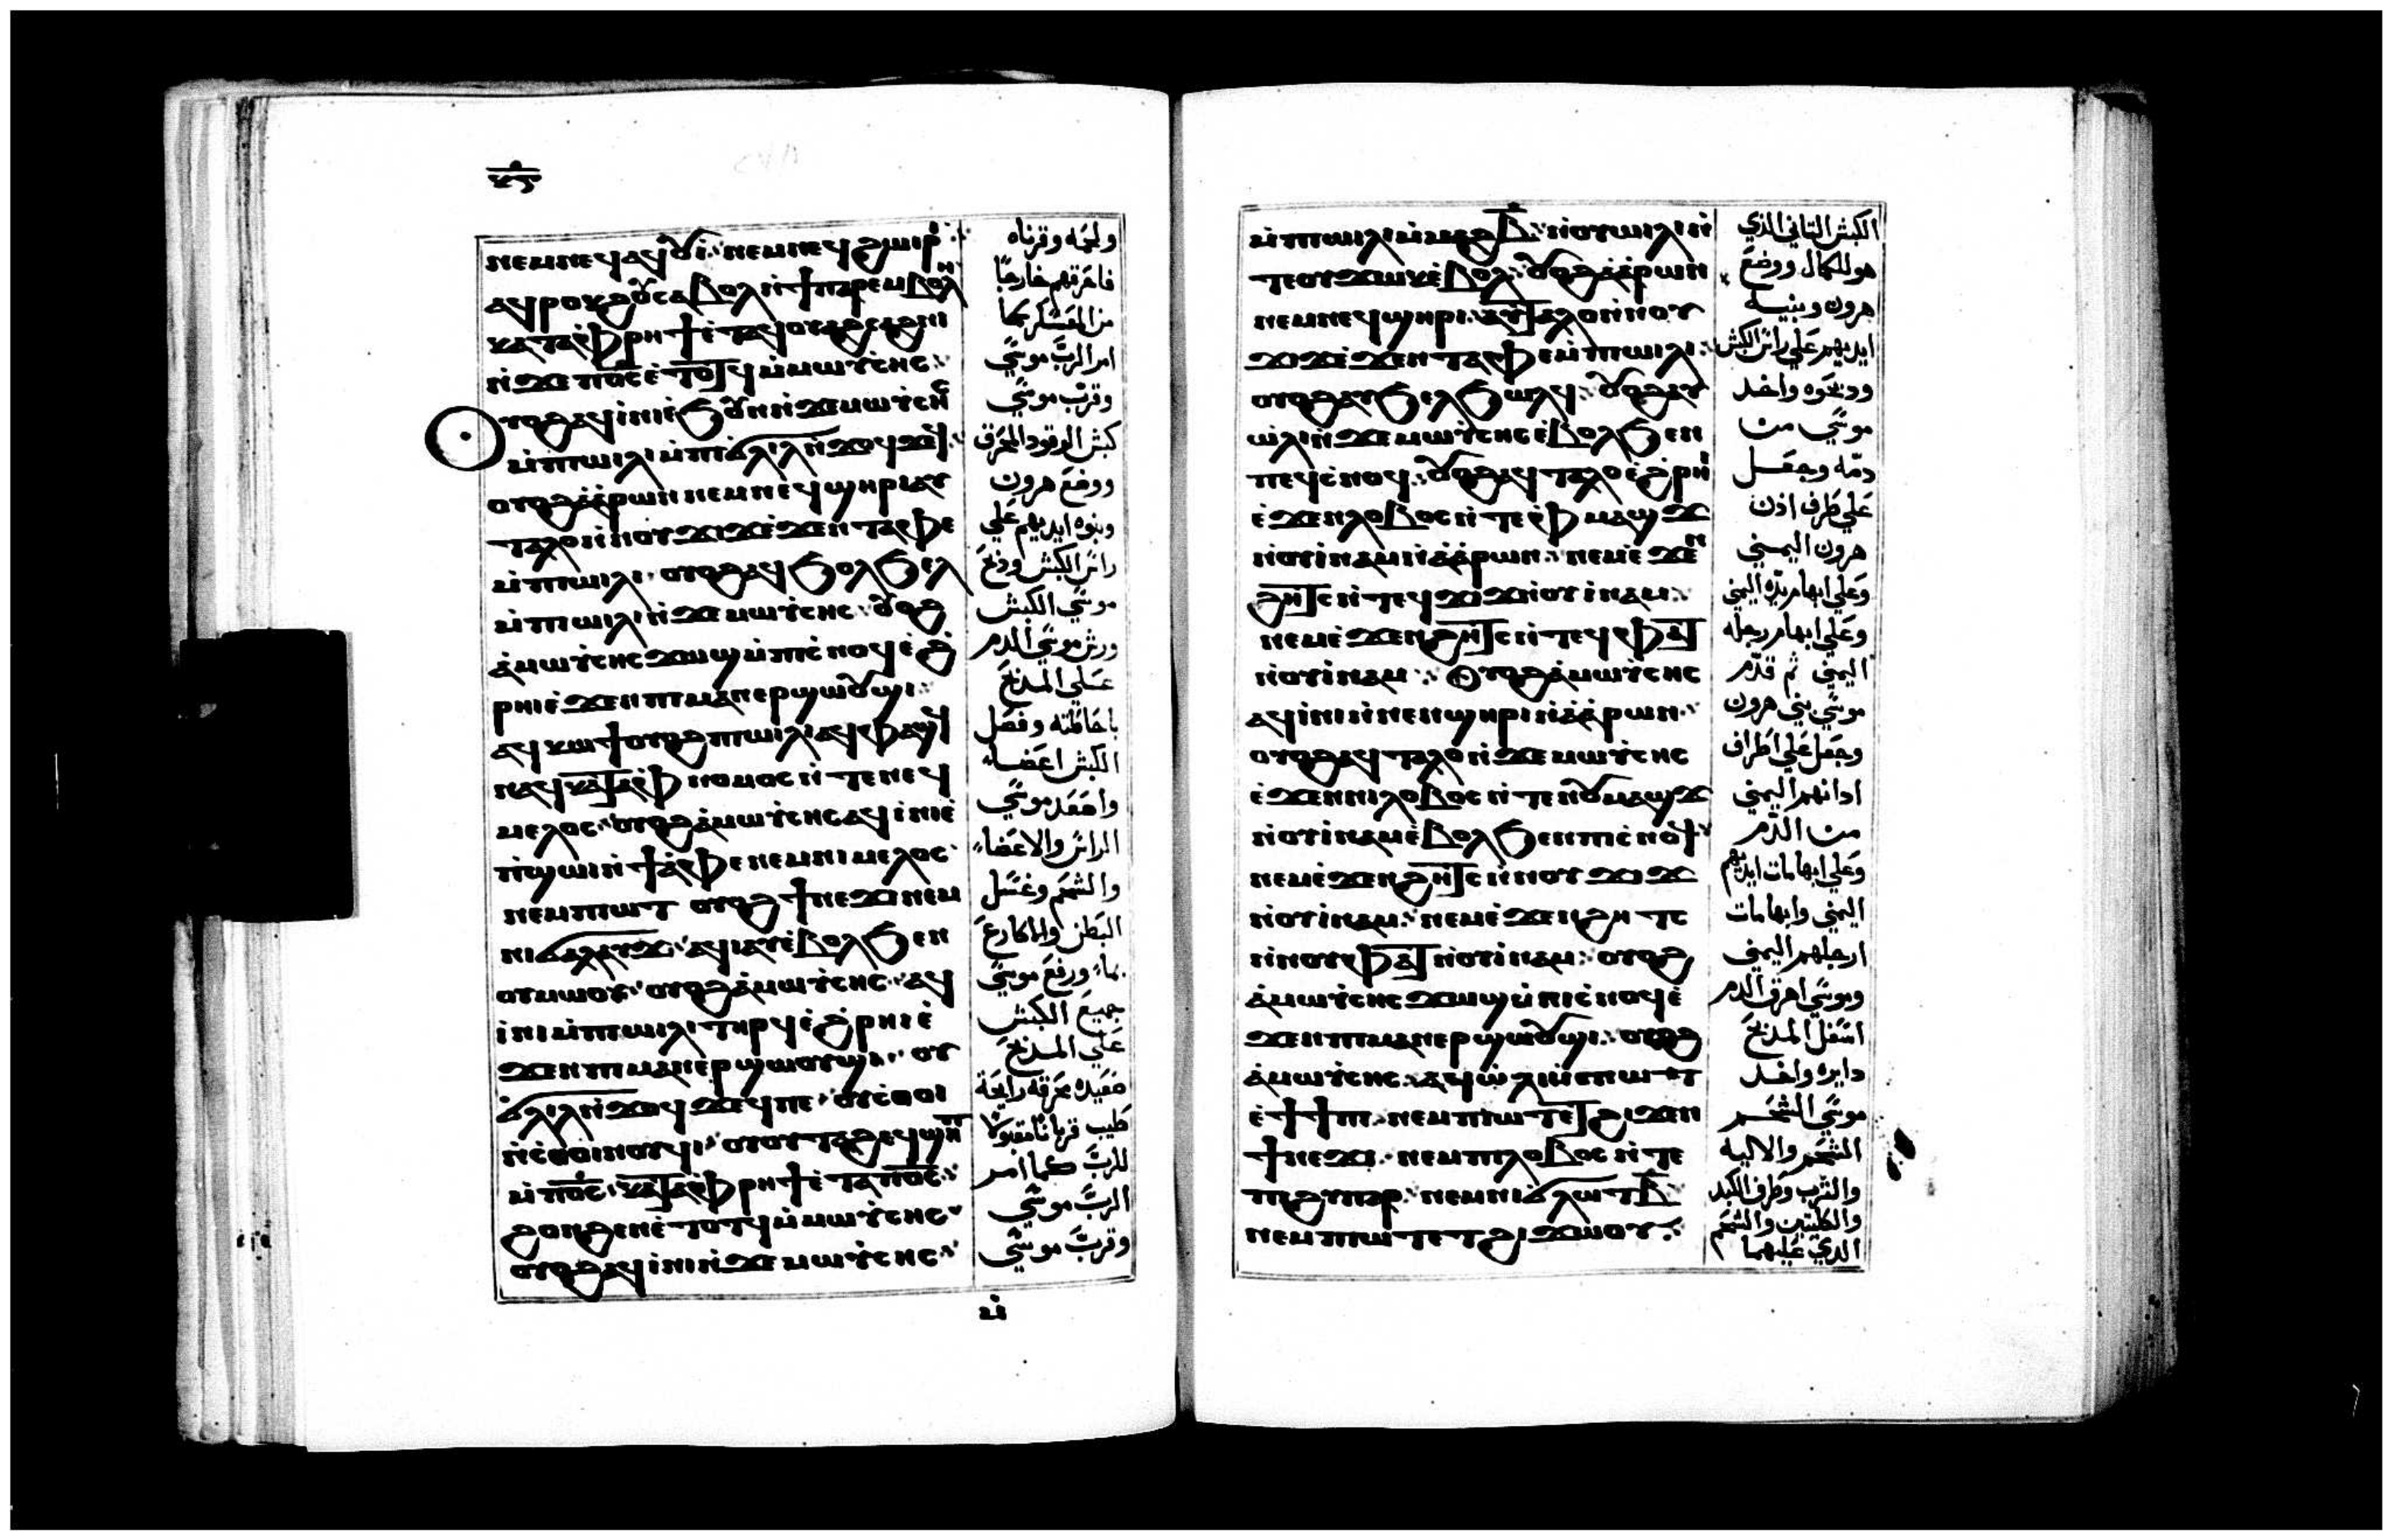 ⲛⲉⲙⲛⲉϥⲁϥⲟⲩⲓ̀ ⲛⲉⲙⲛⲉϥϩⲱⲓⲣⲓ
ⲁϥⲣⲟⲕϩⲟⲩ ⲥⲁⲃⲟⲗ ⲛ̀ϯⲡⲁⲣⲉⲙⲃⲟⲗⲏ
ⲕⲁⲧⲁ̀ⲫⲣⲏϯ ⲉ̀ⲧⲁϥⲟⲩⲁϩⲥⲁϩⲛⲓ
ⲛ̀ϫⲉ ⲡⲟ̅ⲥ̅ ⲉ̀ⲧⲟⲧϥ ⲙ̀ⲙⲱⲩ̀ⲥⲏⲥ
ⲟⲩⲟϩ ⲁϥⲓ̀ⲛⲓ ⲉ̀ϧⲟⲩⲛ ⲛ̀ϫⲉ ⲙⲱⲩ̀ⲥⲏⲥ
ⲙ̀ⲡⲓⲱⲓⲗⲓ ⲙ̀ⲡⲓϭⲗⲓⲗ ⲛ̀ϫⲟϥϫⲉϥ
ⲟⲩⲟϩ ⲁ̀ⲁ̀ⲣⲱⲛ ⲛⲉⲙ ⲛⲉϥϣⲏⲣⲓ ⲁⲩ
ⲧⲁⲗⲟ ⲛ̀ⲛⲟⲩϫⲓϫ ⲉ̀ϫⲉⲛ ⲧⲁ̀ⲫⲉ
ⲙ̀ⲡⲓⲱⲓⲗⲓ ⲟⲩⲟϩ ⲁϥϧⲟⲗϧⲉⲗ
ⲙ̀ⲡⲓⲱⲓⲗⲓ ⲛ̀ϫⲉ ⲙⲱⲩ̀ⲥⲏⲥ ⲟⲩⲟϩ
ⲁ̀ⲙⲱⲩ̀ⲥⲏⲥ ϫⲱϣ ⲙ̀ⲡⲓⲥ̀ⲛⲟϥ ⲉ̀ϩ̀
ⲣⲏⲓ ⲉ̀ϫⲉⲛ ⲡⲓⲙⲁⲛⲉⲣϣⲱⲟⲩϣⲓ
ⲁϥⲕⲱϯ ⲟⲩⲟϩ ⲡⲓⲱⲓⲗⲓ ⲁϥⲫⲁϣϥ
ⲛⲁϥ ⲕⲁⲧⲁ̀ⲫⲛⲟⲙⲟⲥ ⲛ̀ⲧⲉ ⲛⲉϥ
ⲙⲉⲗⲟⲥ ⲟⲩⲟϩ ⲁ̀ⲙⲱⲩ̀ⲥⲏⲥ ⲁϥⲓ̀ⲛⲓ ⲉ̀
ⲡ̀ϣⲱⲓ ⲛ̀ϯⲁ̀ⲫⲉ ⲛⲉⲙ ⲛⲓⲙⲉⲗⲟⲥ
ⲛⲉⲙ ⲡⲓⲱⲧ ⲟⲩⲟϩ ϯⲛⲉϫⲓ ⲛⲉⲙ
ⲛⲓϭⲁⲗⲁⲩϫ ⲁϥⲓⲁⲩ ⲉ̀ⲃⲟⲗϧⲉⲛ
ⲟⲩⲙⲱⲟⲩ ⲟⲩⲟϩ ⲁ̀ⲙⲱⲩ̀ⲥⲏⲥ ⲁϥ
ⲓ̀ⲛⲓ ⲙ̀ⲡⲓⲱⲓⲗⲓ ⲧⲏⲣϥ ⲉ̀ϩ̀ⲣⲏⲓ ⲉ̀
ϫⲉⲛ ⲡⲓⲙⲁⲛⲉⲣϣⲱⲟⲩϣⲓ ⲟⲩ
ϭⲗⲓⲗ ⲛ̀ϫⲟϥϫⲉϥ ⲡⲉ ⲟⲩⲥ̀ⲑⲟⲓ
ⲛ̀ⲥ̀ⲑⲟⲓⲛⲟⲩϥⲓ ⲟⲩⲟⲩⲧⲁϩ ⲁϥϣⲱⲡⲓ
ⲙ̀ⲡⲟ̅ⲥ̅ ⲕⲁⲧⲁ̀ⲫⲣⲏϯ ⲉ̀ⲧⲁ ⲡⲟ̅ⲥ̅
ϩⲟⲛϩⲉⲛ ⲉ̀ⲧⲟⲧϥ ⲙ̀ⲙⲱⲩ̀ⲥⲏⲥ
ⲟⲩⲟϩ ⲁϥⲓ̀ⲛⲓ ⲛ̀ϫⲉ ⲙⲱⲩ̀ⲥⲏⲥ
ⲙ̀
ولحمه وقرناه
فاحرقهم خارجًا
من المعسكر كما
امر الرب موسي
وقرب موسي
كبش الوقود المحرق
ووضع هرون
وبنوه ايديهم علي
راس الكبش وذبح
موسي الكبش
ورش موسي الدم
علي المذبح
باحاطته وفصل
الكبش اعضاء
واصعد موسي
الراس والاعضاء
والشحم وغسل
البطن والاكارع
بماء ورفع موسي
جميع الكبش
علي المذبح
صعيده محرقه رايحة
طيب قربانا مقبولا
للرب كما امر
الرب موسي
وقرب موسي
ⲙ̀ⲡⲓⲱⲓⲗⲓ ⲙ̀ⲙⲁϩⲃ̅ ⲛ̀ⲟⲩⲱⲓⲗⲓ ⲛ̀
ⲧⲉ ⲟⲩϫⲱⲕ ⲉ̀ⲃⲟⲗ ⲟⲩⲟϩ ⲁ̀ⲁ̀ⲣⲱⲛ
ⲛⲉⲙ ⲛⲉϥϣⲏⲣⲓ ⲁⲩⲧⲁⲗⲟ ⲛ̀ⲛⲟⲩ
ϫⲓϫ ⲉ̀ϫⲉⲛ ⲧⲁ̀ⲫⲉ ⲙ̀ⲡⲓⲱⲓⲗⲓ
ⲟⲩⲟϩ ⲁⲩϧⲉⲗϧⲱⲗϥ ⲟⲩⲟϩ ⲁϥ
ⲱ̀ⲗⲓ ⲛ̀ϫⲉ ⲙⲱⲩ̀ⲥⲏⲥ ⲉ̀ⲃⲟⲗϧⲉⲛ
ⲡⲉϥⲥ̀ⲛⲟϥ ⲟⲩⲟϩ ⲁϥⲧⲁⲗⲟ ⲉ̀ϩ̀ⲣⲏⲓ
ⲉ̀ϫⲉⲛ ⲗⲟⲃⲟⲥ ⲛ̀ⲧⲉ ⲫ̀ⲙⲁϣϫ
ⲛ̀ⲟⲩⲓ̀ⲛⲁⲙ ⲛ̀ⲁ̀ⲁ̀ⲣⲱⲛ ⲛⲉⲙ ⲉ̀ϫⲉⲛ
ϩⲏⲧⲥ ⲛ̀ⲧⲉϥϫⲓϫ ⲛ̀ⲟⲩⲓ̀ⲛⲁⲙ
ⲛⲉⲙ ⲉ̀ϫⲉⲛ ϩⲏⲧⲥ ⲛ̀ⲧⲉϥⲫⲁⲧ
ⲛ̀ⲟⲩⲓ̀ⲛⲁⲙ ⲟⲩⲟϩ ⲁ̀ⲙⲱⲩ̀ⲥⲏⲥ
ⲁϥⲓ̀ⲛⲓ ⲛ̀ⲛⲉⲛϣⲏⲣⲓ ⲛ̀ⲁ̀ⲁ̀ⲣⲱⲛ
ⲟⲩⲟϩ ⲁϥⲧⲁⲗⲟ ⲛ̀ϫⲉ ⲙⲱⲩ̀ⲥⲏⲥ
ⲉ̀ϫⲉⲛ ⲛⲓⲗⲟⲃⲟⲥ ⲛ̀ⲧⲉ ⲛⲟⲩⲙⲁϣϫ
ⲛ̀ⲟⲩⲓ̀ⲛⲁⲙ ⲉ̀ⲃⲟⲗϧⲉⲛ ⲡⲓⲥ̀ⲛⲟϥ
ⲛⲉⲙ ⲉ̀ϫⲉⲛ ϩⲏⲧⲥ ⲛ̀ⲛⲟⲩϫⲓϫ
ⲛ̀ⲟⲩⲓ̀ⲛⲁⲙ ⲛⲉⲙ ⲉ̀ϫⲉⲛ ϩⲏⲧⲥ
ⲛ̀ⲛⲟⲩⲫⲁⲧ ⲛ̀ⲟⲩⲓ̀ⲛⲁⲙ ⲟⲩⲟϩ
ⲁ̀ⲙⲱⲩ̀ⲥⲏⲥ ϫⲱϣ ⲙ̀ⲡⲓⲥ̀ⲛⲟϥ ⲉ̀
ϫⲉⲛ ⲡⲓⲙⲁⲛⲉⲣϣⲱⲟⲩϣⲓ ⲟⲩⲟϩ
ⲁ̀ⲙⲱⲩ̀ⲥⲏⲥ ⲁϥⲱ̀ⲗⲓ ⲙ̀ⲡⲓⲱⲧ
ⲉ̀ϯϯⲡⲓ ⲛⲉⲙ ⲡⲓⲱⲧ ⲉⲧϩⲓϫⲉⲛ
ϯⲛⲉϫⲓ ⲛⲉⲙ ⲡⲓⲗⲟⲃⲟⲥ ⲛ̀ⲧⲉ
ⲡⲓϩⲩⲡⲁⲣ ⲛⲉⲙ ⲛⲓϭⲗⲱⲧ ⲃ̅
ⲛⲉⲙ ⲡⲓⲱⲧ ⲉⲧϩⲓϫⲱⲟⲩ
الكبش التاني الذي
هو للكمال ووضع
هرون وبنيه
ايديهم علي راس الكبش
ودبحوه واخد
موسي من
دمه وجعل
علي طرف اذن
هرون اليمني
وعلي ابهام يده اليمني
وعلي ابهام رجله
اليمني ثم قدم
موسي بني هرون
وجعل علي اطراف
ادانهم اليمني
من الدم
وعلي ابهامات ايديهم
اليمني وابهامات
ارجلهم اليمني
وموسي اهرق الدم
اسفل المذبح
دايره واخد
موسي الشحم
الشحم والاليه
والثرب وطرف الكبد
والكليتين والشحم
الدي عليهما